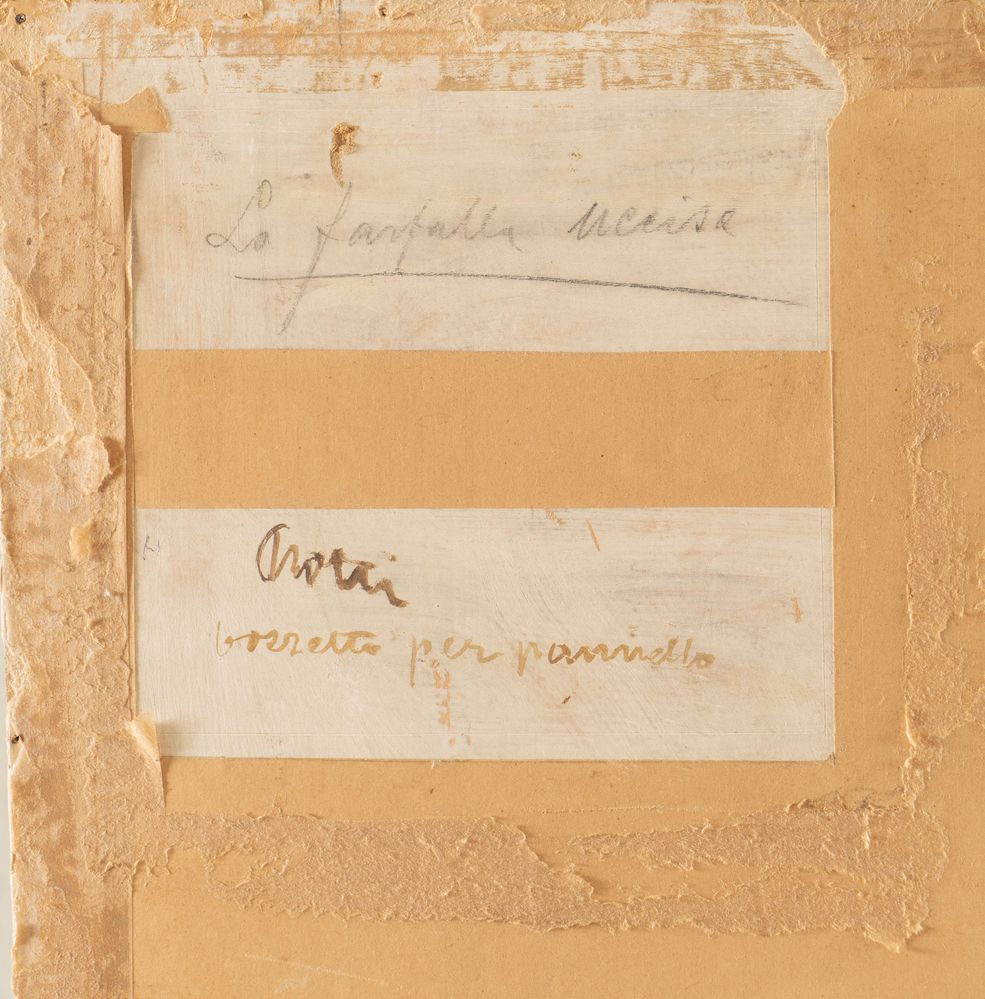 La farfalla uccisa
Crotti
bozzetto per pannello